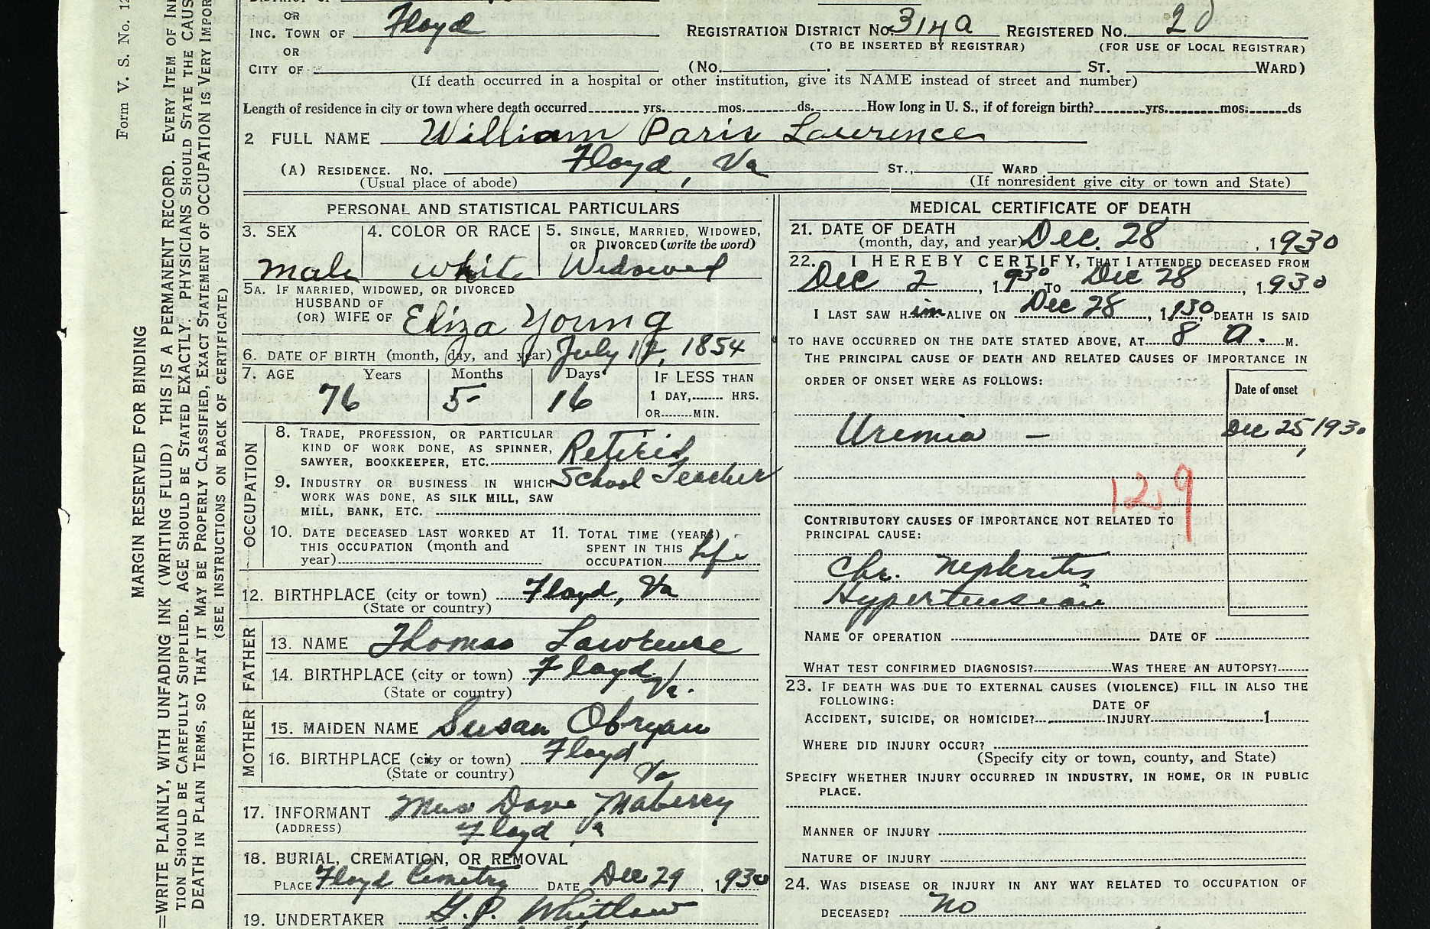 OR
INC. TOWN OF Floyd REGISTRATION DISTRICT No. 314a REGISTERED No. 20
(TO BE INSERTED BY REGISTRAR) (FOR USE OF LOCAL REGISTRAR)
OR
CITY OF (No. ST. WARD)
(If death occurred in a hospital or other institution, give its NAME instead of street and number)
Length of residence in city or town where death occurred yrs. mos. ds. How long in U. S., if of foreign birth? yrs. mos. ds
2 FULL NAME William Paris Lawrence
(A) RESIDENCE. No. Floyd, Va ST., WARD
(Usual place of abode) (If nonresident give city or town and State)
PERSONAL AND STATISTICAL PARTICULARS
3. SEX 4. COLOR OR RACE 5. SINGLE, MARRIED, WIDOWED,
OR DIVORCED (write the word)
male white Widowed
5A. IF MARRIED, WIDOWED, OR DIVORCED
HUSBAND OF
(OR) WIFE OF Eliza Young
6. DATE OF BIRTH (month, day, and year) July 12, 1854
7. AGE Years Months Days IF LESS THAN
1 DAY, HRS.
76 5 16
OR MIN.
OCCUPATION
8. TRADE, PROFESSION, OR PARTICULAR
KIND OF WORK DONE, AS SPINNER,
SAWYER, BOOKKEEPER, ETC. Retired
9. INDUSTRY OR BUSINESS IN WHICH School Teacher
WORK WAS DONE, AS SILK MILL, SAW
MILL, BANK, ETC.
10. DATE DECEASED LAST WORKED AT
THIS OCCUPATION (month and
year)
11. TOTAL TIME (YEARS)
SPENT IN THIS
OCCUPATION life
12. BIRTHPLACE (city or town) Floyd, Va
(State or country)
FATHER
13. NAME Thomas Lawrence
14. BIRTHPLACE (city or town) Floyd
(State or country) Va.
MOTHER
15. MAIDEN NAME Susan Obryan
16. BIRTHPLACE (city or town) Floyd
(State or country) Va
17. INFORMANT Dave Maberry
(ADDRESS) Floyd Va
18. BURIAL, CREMATION, OR REMOVAL
PLACE Floyd Cemetry DATE Dec 29, 1930
19. UNDERTAKER G.P. Whitlow
MEDICAL CERTIFICATE OF DEATH
21. DATE OF DEATH
(month, day, and year) Dec. 28, 1930
22. I HEREBY CERTIFY, THAT I ATTENDED DECEASED FROM
Dec 2, 1930 TO Dec 28, 1930
I LAST SAW H im ALIVE ON Dec 28, 1930, DEATH IS SAID
TO HAVE OCCURRED ON THE DATE STATED ABOVE, AT 8 a. M.
THE PRINCIPAL CAUSE OF DEATH AND RELATED CAUSES OF IMPORTANCE IN
ORDER OF ONSET WERE AS FOLLOWS: Date of onset
Uremia — Dec 25, 1930
129
CONTRIBUTORY CAUSES OF IMPORTANCE NOT RELATED TO
PRINCIPAL CAUSE:
Chr. Nephritis
Hypertension
NAME OF OPERATION DATE OF
WHAT TEST CONFIRMED DIAGNOSIS? WAS THERE AN AUTOPSY?
23. IF DEATH WAS DUE TO EXTERNAL CAUSES (VIOLENCE) FILL IN ALSO THE
FOLLOWING:
DATE OF
ACCIDENT, SUICIDE, OR HOMICIDE? INJURY 1
WHERE DID INJURY OCCUR?
(Specify city or town, county, and State)
SPECIFY WHETHER INJURY OCCURRED IN INDUSTRY, IN HOME, OR IN PUBLIC
PLACE.
MANNER OF INJURY
NATURE OF INJURY
24. WAS DISEASE OR INJURY IN ANY WAY RELATED TO OCCUPATION OF
DECEASED? No
Form V. S. No.
MARGIN RESERVED FOR BINDING
WRITE PLAINLY, WITH UNFADING INK (WRITING FLUID) THIS IS A PERMANENT RECORD. EVERY ITEM OF
TION SHOULD BE CAREFULLY SUPPLIED. AGE SHOULD BE STATED EXACTLY. PHYSICIANS SHOULD STATE THE
DEATH IN PLAIN TERMS, SO THAT IT MAY BE PROPERLY CLASSIFIED, EXACT STATEMENT OF OCCUPATION IS VERY
(SEE INSTRUCTIONS ON BACK OF CERTIFICATE)